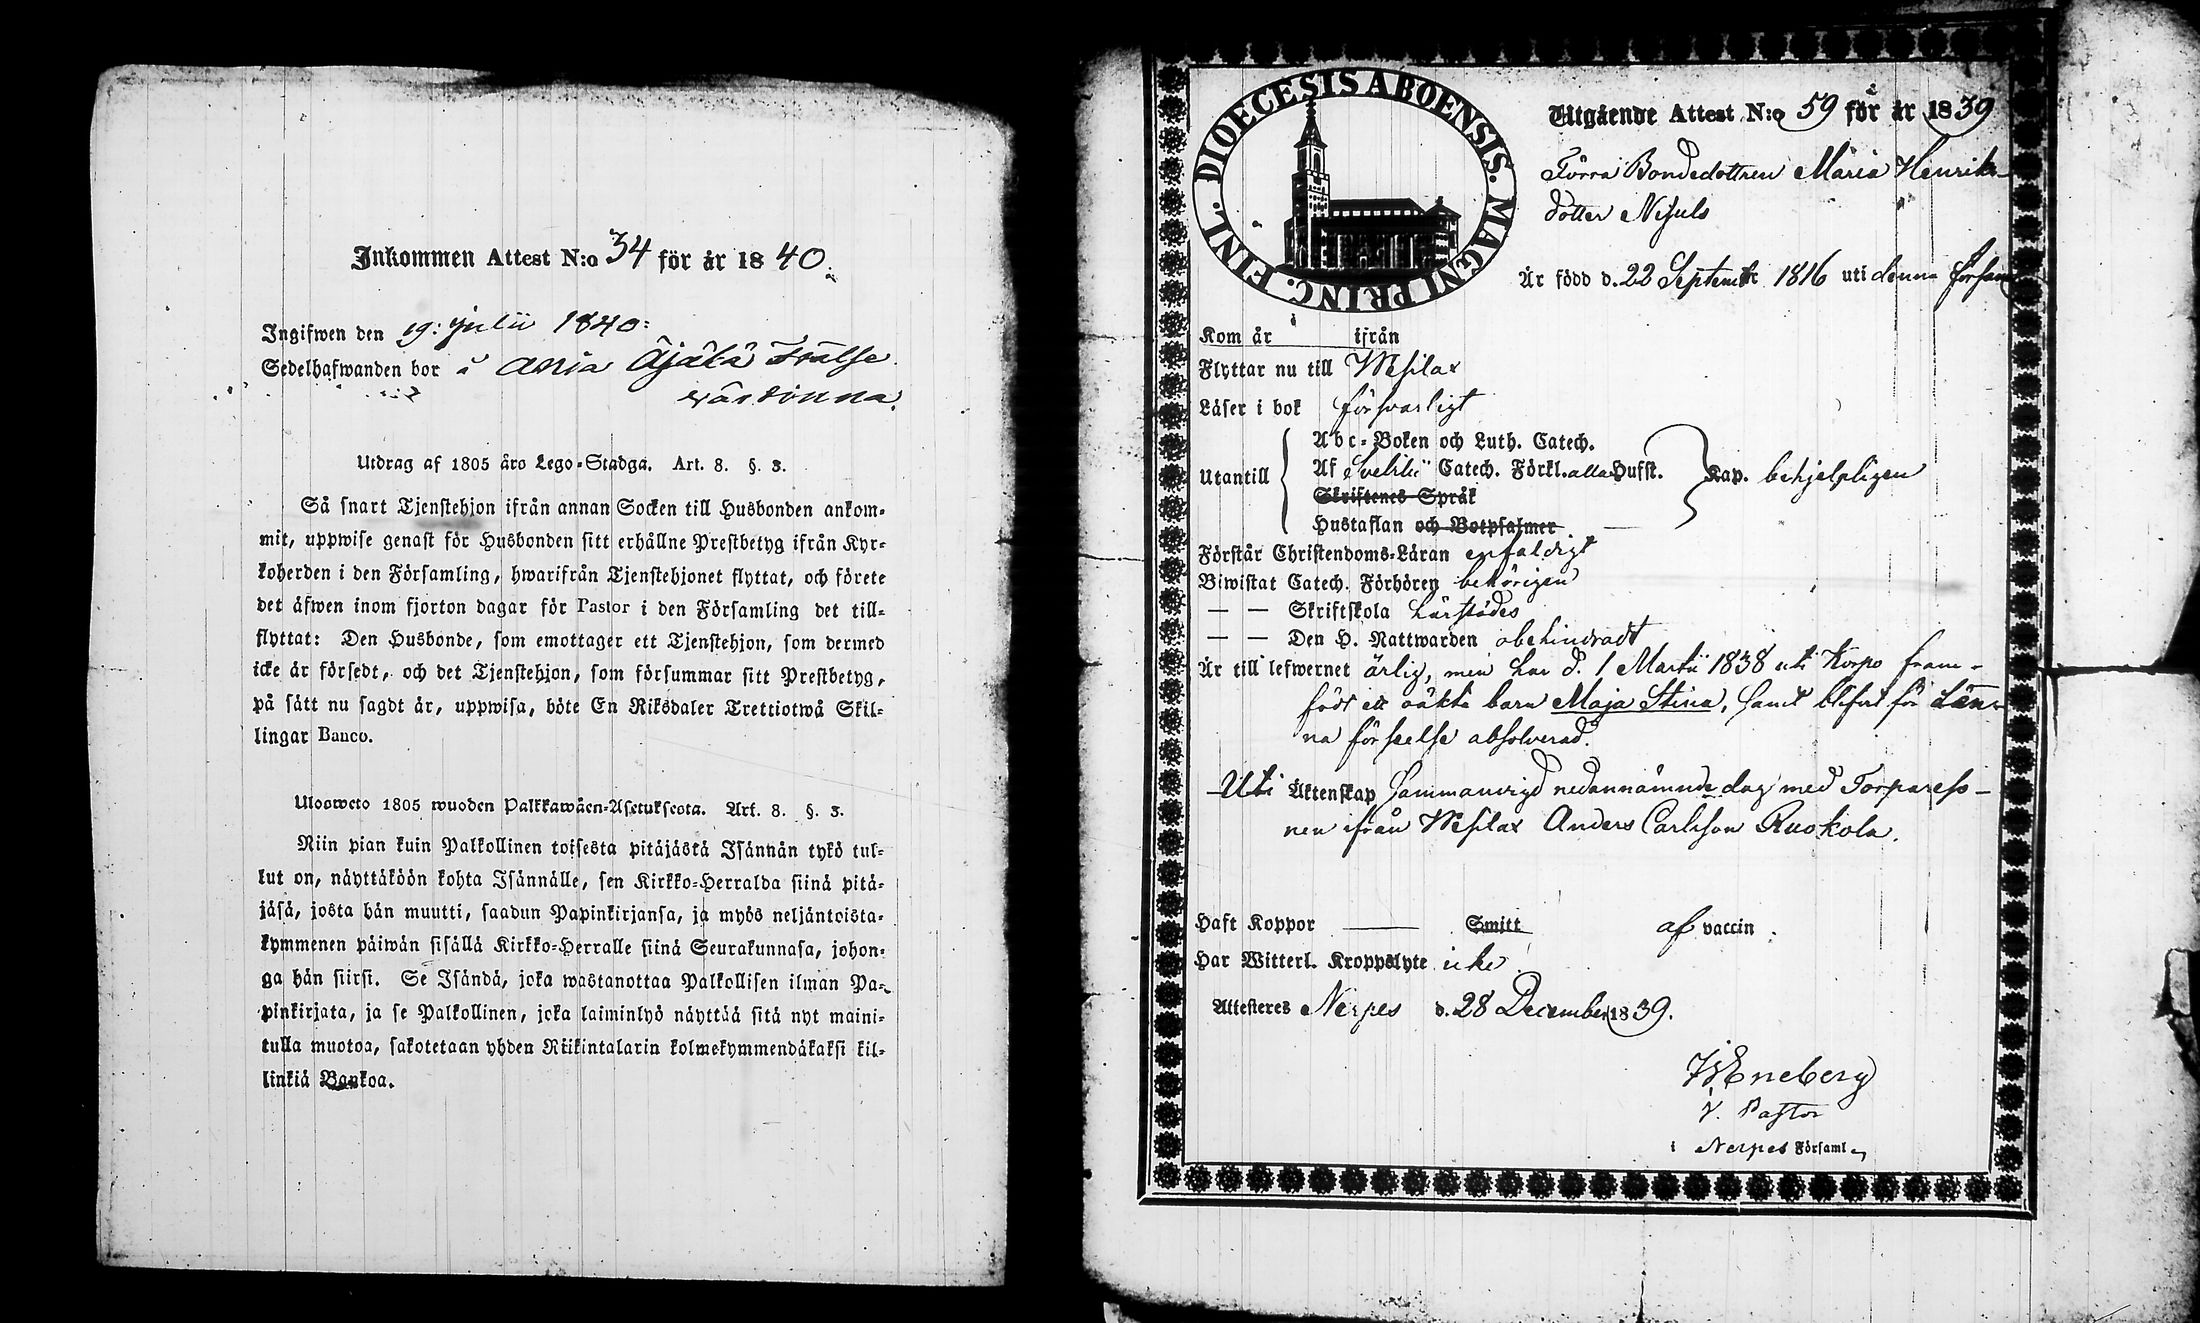 Inkommen Attest N:o 34 för år 1840.
Ingifwen den 19: Julii 1840:
Sedelhafwanden bor å Ania Äjälä Frälse
värdinna.
Utdrag af 1805 åro Lego-Stadga. Art. 8. §. 3.
Så snart Tjenstehjon ifrån annan Socken till Husbonden ankom-
mit, uppwise genast för Husbonden sitt erhållne Prestbetyg ifrån Kyr-
koherden i den Församling, hwarifrån Tjenstehjonet flyttat, och förete
det äfwen inom fjorton dagar för Pastor i den Församling det till-
flyttat: Den Husbonde, som emottager ett Tjenstehjon, som dermed
icke är försedt, och det Tjenstehjon, som försummar sitt Prestbetyg,
på sätt nu sagdt är, uppwisa, böte En Riksdaler Trettiotwå Skil-
lingar Banco.
Uloosweto 1805 wuoden Palkkawäen-Asetuksesta. Art. 8. §. 3.
Niin pian kuin Palkollinen toisesta pitäjästä Isännän tykö tul-
lut on, näyttäköön kohta Isännälle, sen Kirkko-Herralda siinä pitä-
jäsä, josta hän muutti, saadun Papinkirjansa, ja myös neljäntoista-
kymmenen päiwän sisällä Kirkko-Herralle siinä Seurakunnasa, johon-
ga hän siirsi. Se Isändä, joka wastanottaa Palkollisen ilman Pa-
pinkirjata, ja se Palkollinen, joka laiminlyö näyttää sitä nyt maini-
tulla muotoa, sakotetaan yhden Riikintalarin kolmekymmendäkaksi kil-
linkiä Bankoa.
DIOECESIS ABOENSIS. MAGNI PRINC. FINL.
Utgående Attest N:o 59 för år 1839
Förra Bondedottren Maria Henriks-
dotter Nisuls
Är född d. 22 September 1816 uti denna Församl
Kom år ifrån
Flyttar nu till Wesilax
Läser i bok försvarligt
Utantill
Abc-Boken och Luth. Catech.
Af Svebilii Catech. Förkl. alla Hufst.
Skriftenes Språk
Hustaflan och Botpsalmer
Kap. behjelpligen
Förstår Christendoms-Läran enfaldigt
Biwistat Catech. Förhören behörigen
— — Skriftskola härstädes
— — Den H. Nattwarden obehindradt
Är till lefwernet ärlig, men har d. 1 Martii 1838 uti Korpo fram-
födt ett oäkta barn Maja Stina, samt blifvit för dän-
na förseelse absolverad.
Uti Äktenskap Sammanvigd nedannämnde dag med Torparess-
nen ifrån Wesilax Anders Carlsson Ruokola.
Haft Koppor — Smitt af vaccin
Har Witterl. Kroppslyte icke
Attesteres Nerpes d. 28 December 1839.
Eneberg
V. Pastor
i Nerpes Församl